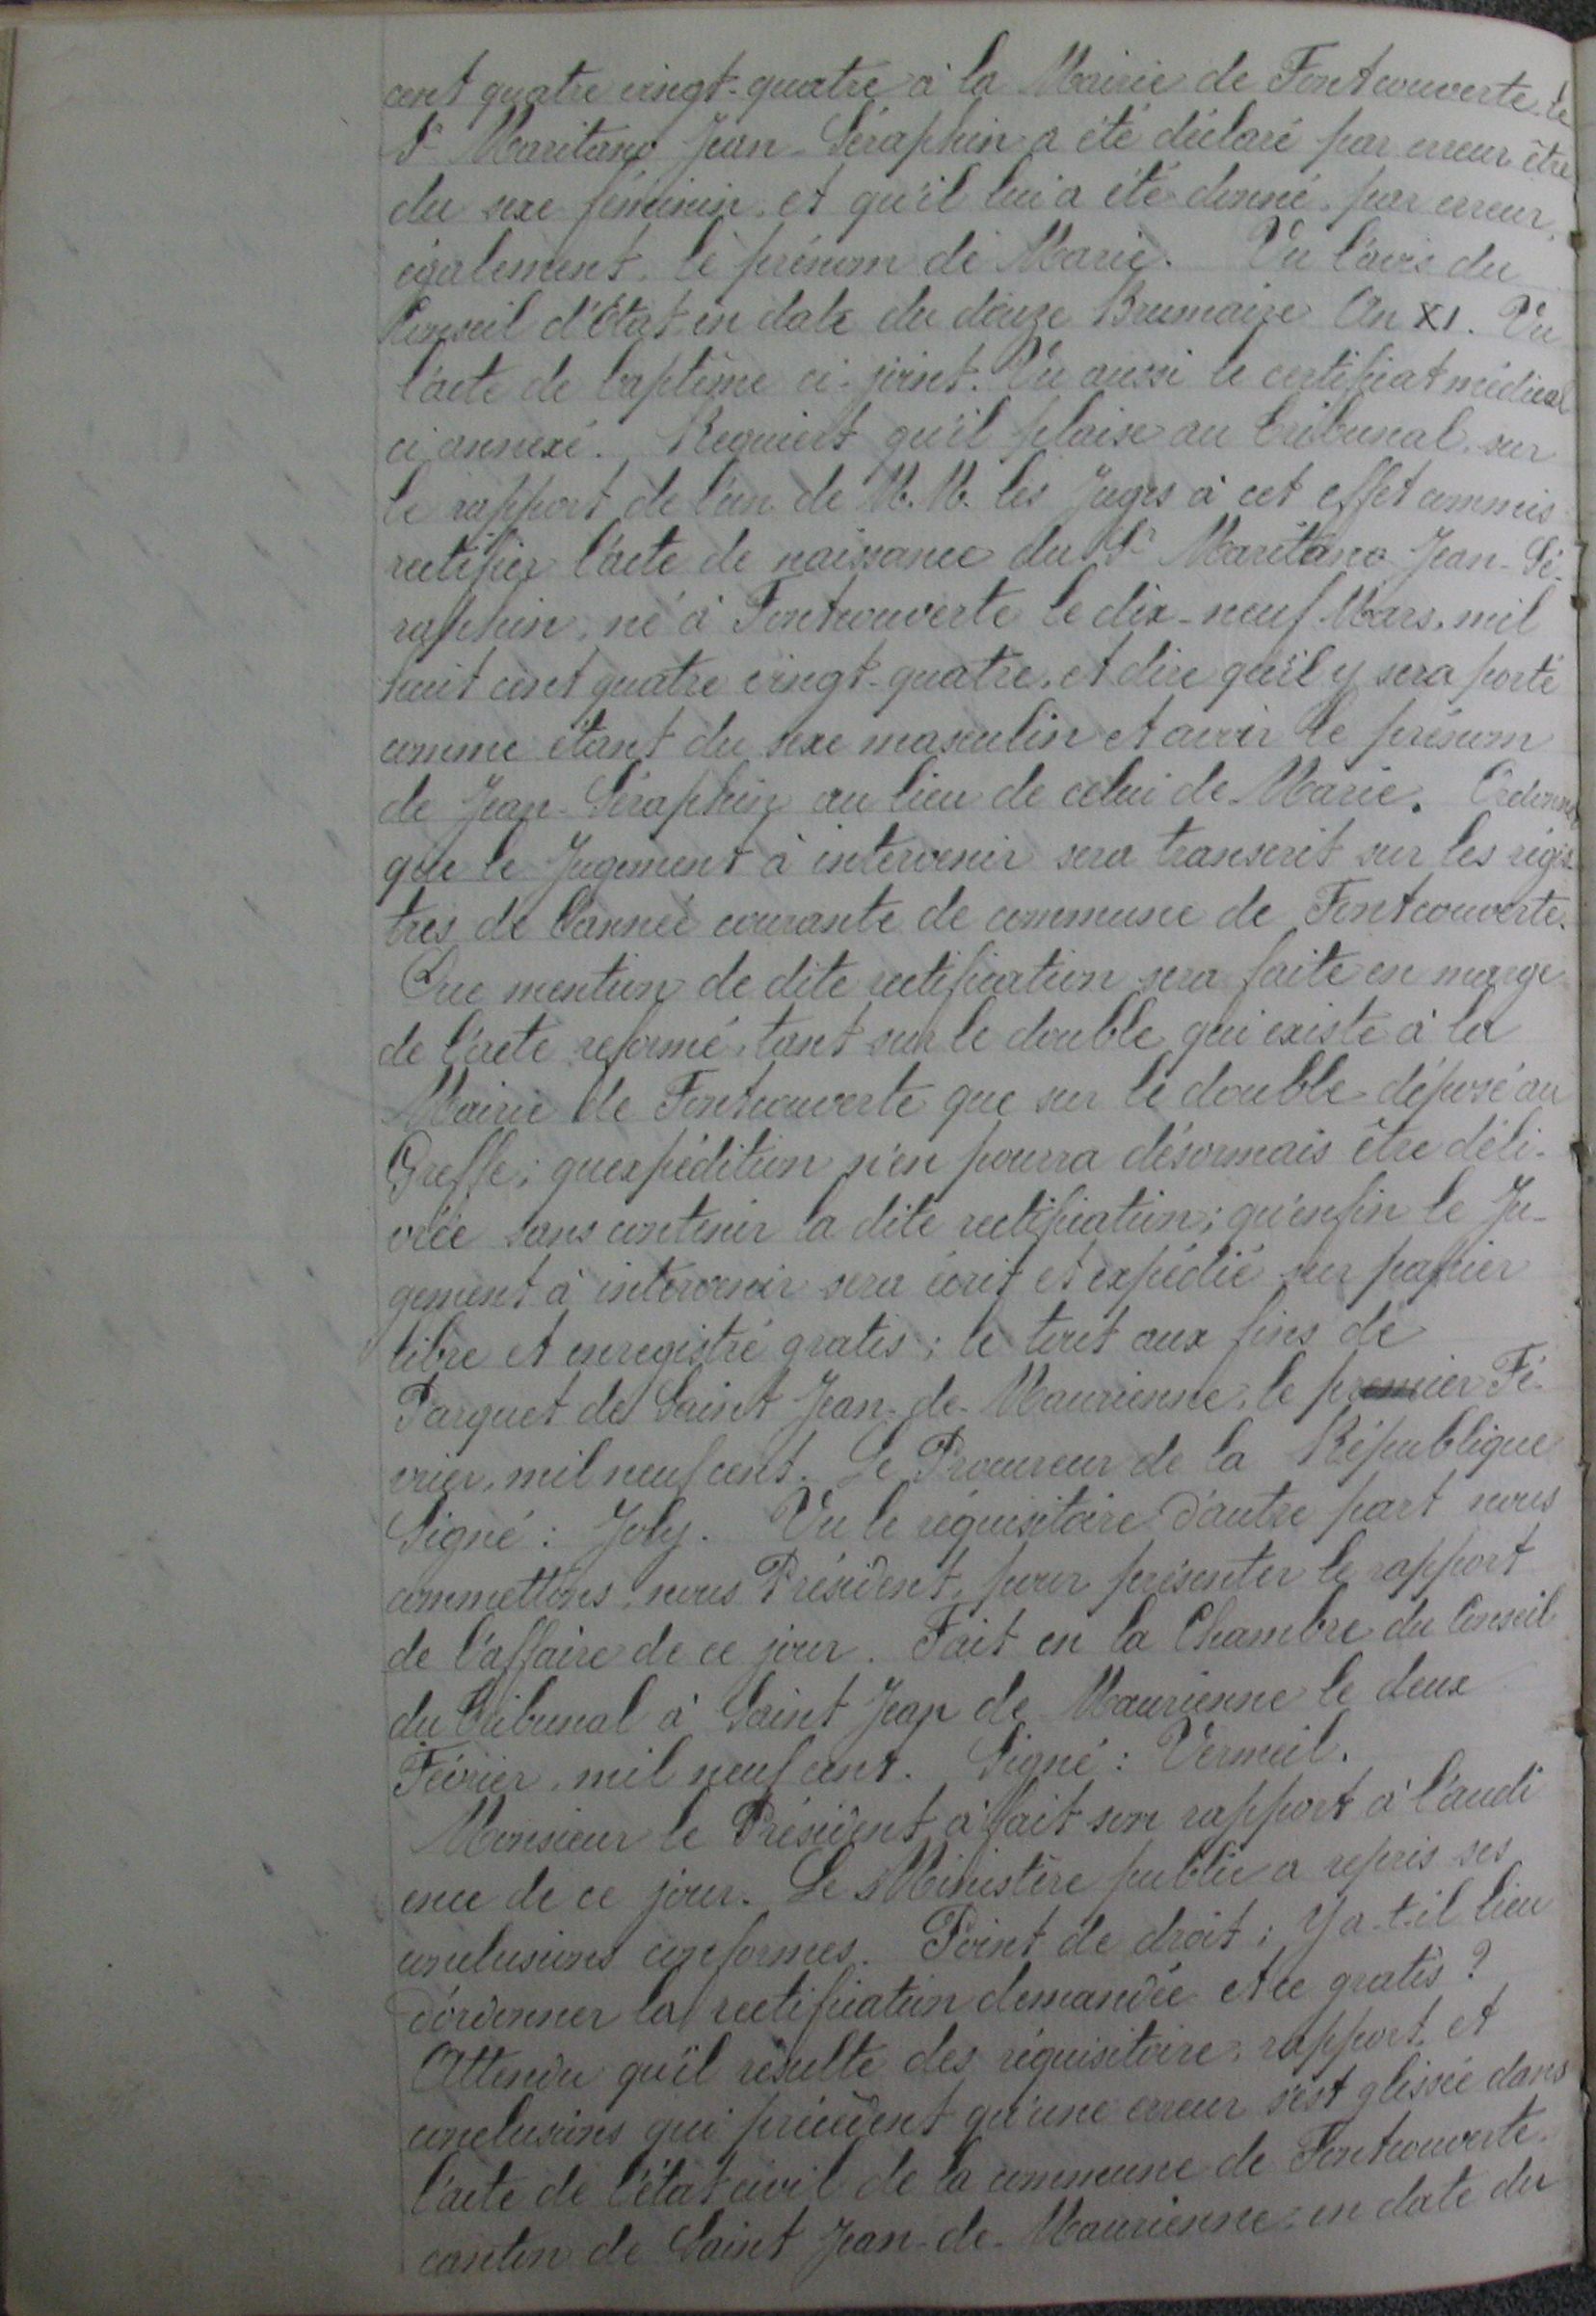 cent quatre vingt-quatre à la Mairie de Fontcouverte, le
Sr Maritano Jean-Séraphin a été déclaré par erreur être
du sexe féminin, et qu'il lui a été donné, par erreur,
également, le prénom de Marie. Vu l'avis du
Conseil d'Etat en date du douze Brumaire An XI. Vu
l'acte de baptême ci-joint. Vu aussi le certificat médical
ci annexé. Requiert qu'il plaise au Tribunal, sur
le rapport de l'un de M.M. les Juges à cet effet commis
rectifier l'acte de naissance du Sr Maritano Jean-Sé-
raphin, né à Fontcouverte le dix-neuf Mars, mil
huit cent quatre vingt-quatre, et dire qu'il y sera porté
comme étant du sexe masculin et avoir le prénom
de Jean-Séraphin au lieu de celui de Marie. Ordonner
que le Jugement à intervenir sera transcrit sur les régis-
tres de l'année courante de commune de Fontcouverte.
Que mention de dite rectification sera faite en marge
de l'acte reformé, tant sur le double qui existe à la
Mairie de Fontcouverte que sur le double déposé au
Greffe; qu'expédition n'en pourra désormais être déli-
vrée sans contenir la dite rectification; qu'enfin le Ju-
gement à intervenir sera écrit et expédié sur papier
libre et enregistré gratis; le tout aux fins de
Parquet de Saint Jean-de-Maurienne, le premier Fé-
vrier, mil neuf cent. Le Procureur de la République
Signé: Joly. Vu le réquisitoire d'autre part nous
commettons, nous Président, pour présenter le rapport
de l'affaire de ce jour. Fait en la Chambre du Conseil
du Tribunal à Saint Jean de Maurienne le deux
Février, mil neuf cent. Signé: Vermeil.
Monsieur le Président a fait son rapport à l'audi
ence de ce jour. Le Ministère public a repris ses
conclusions conformes. Point de droit; Y a-t-il lieu
d'ordonner la rectification demandée et ce gratis?
Attendu qu'il résulte des réquisitoire, rapport, et
conclusions qui précèdent qu'une erreur s'est glissée dans
l'acte de l'état civil de la commune de Fontcouverte,
canton de Saint Jean-de-Maurienne, en date du